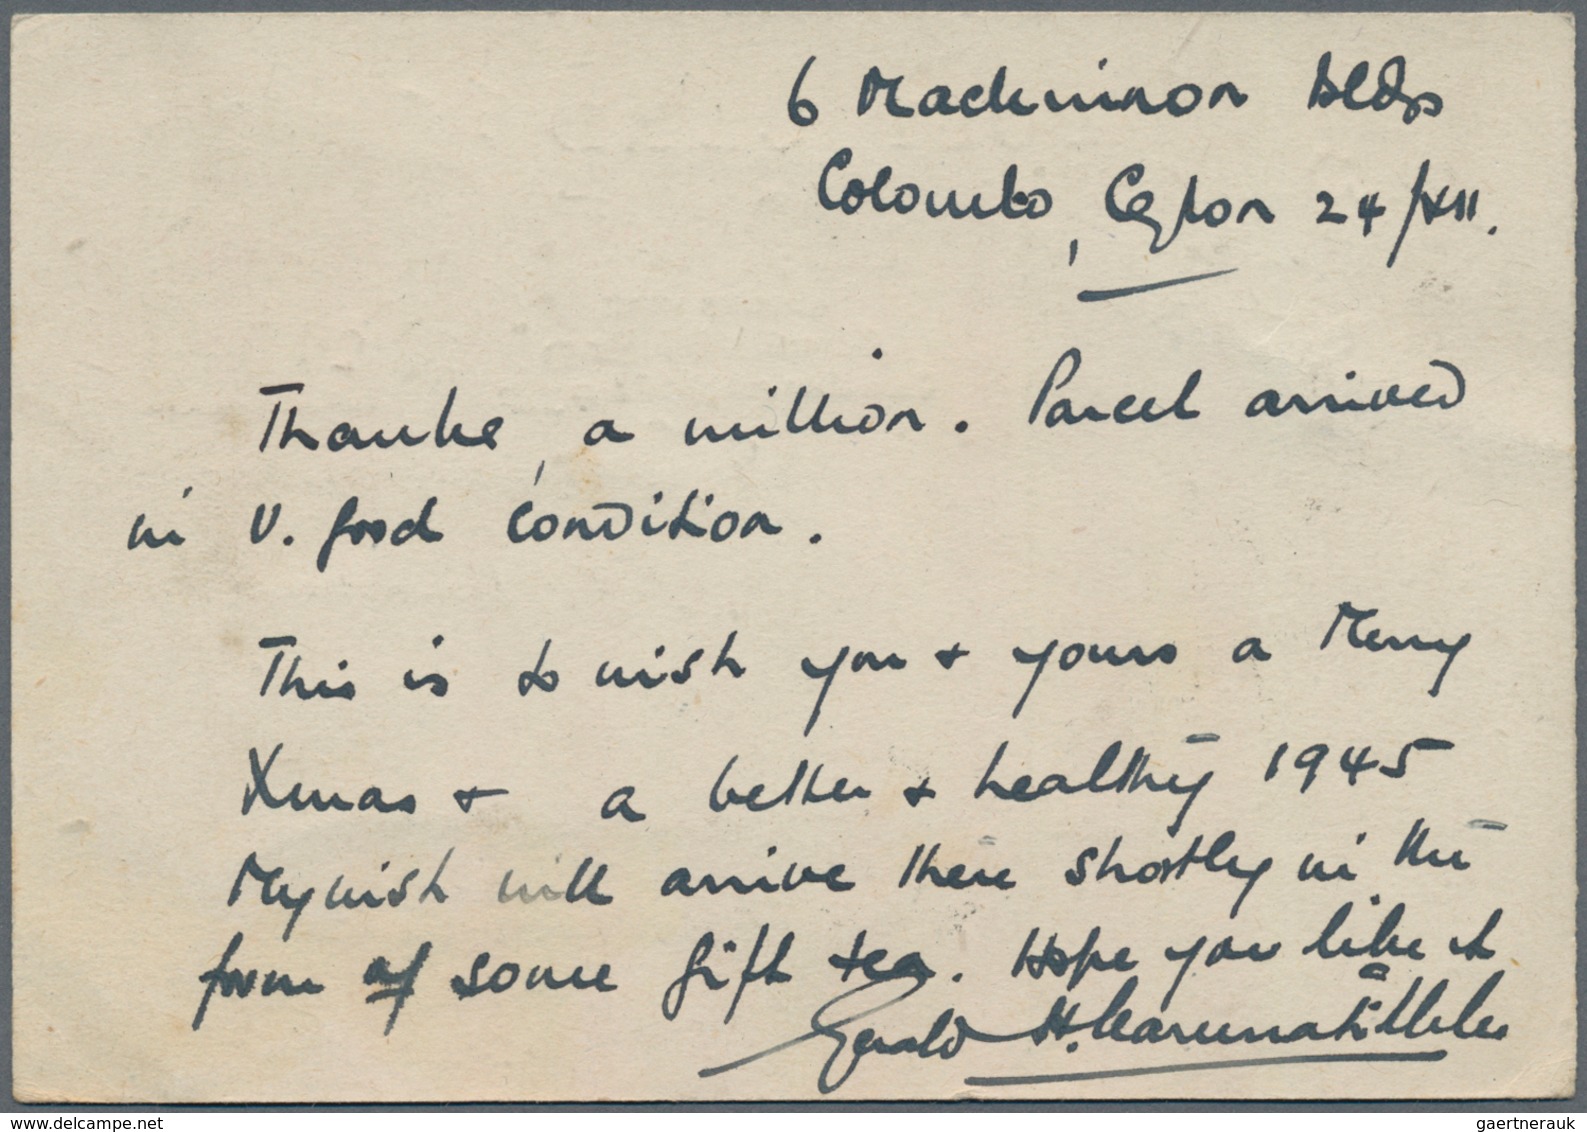 6 Mackinnon Bldgs
Colombo, Ceylon 24/XII.
Thanks, a million. Parcel arrived
in V. good condition.
This is to wish you + yours a Merry
Xmas + a better + healthy 1945
My wish will arrive there shortly in the
form of some gift tea. Hope you like it
Gerald H. Karunatilleke
www.delcampe.net
gaertnerauk